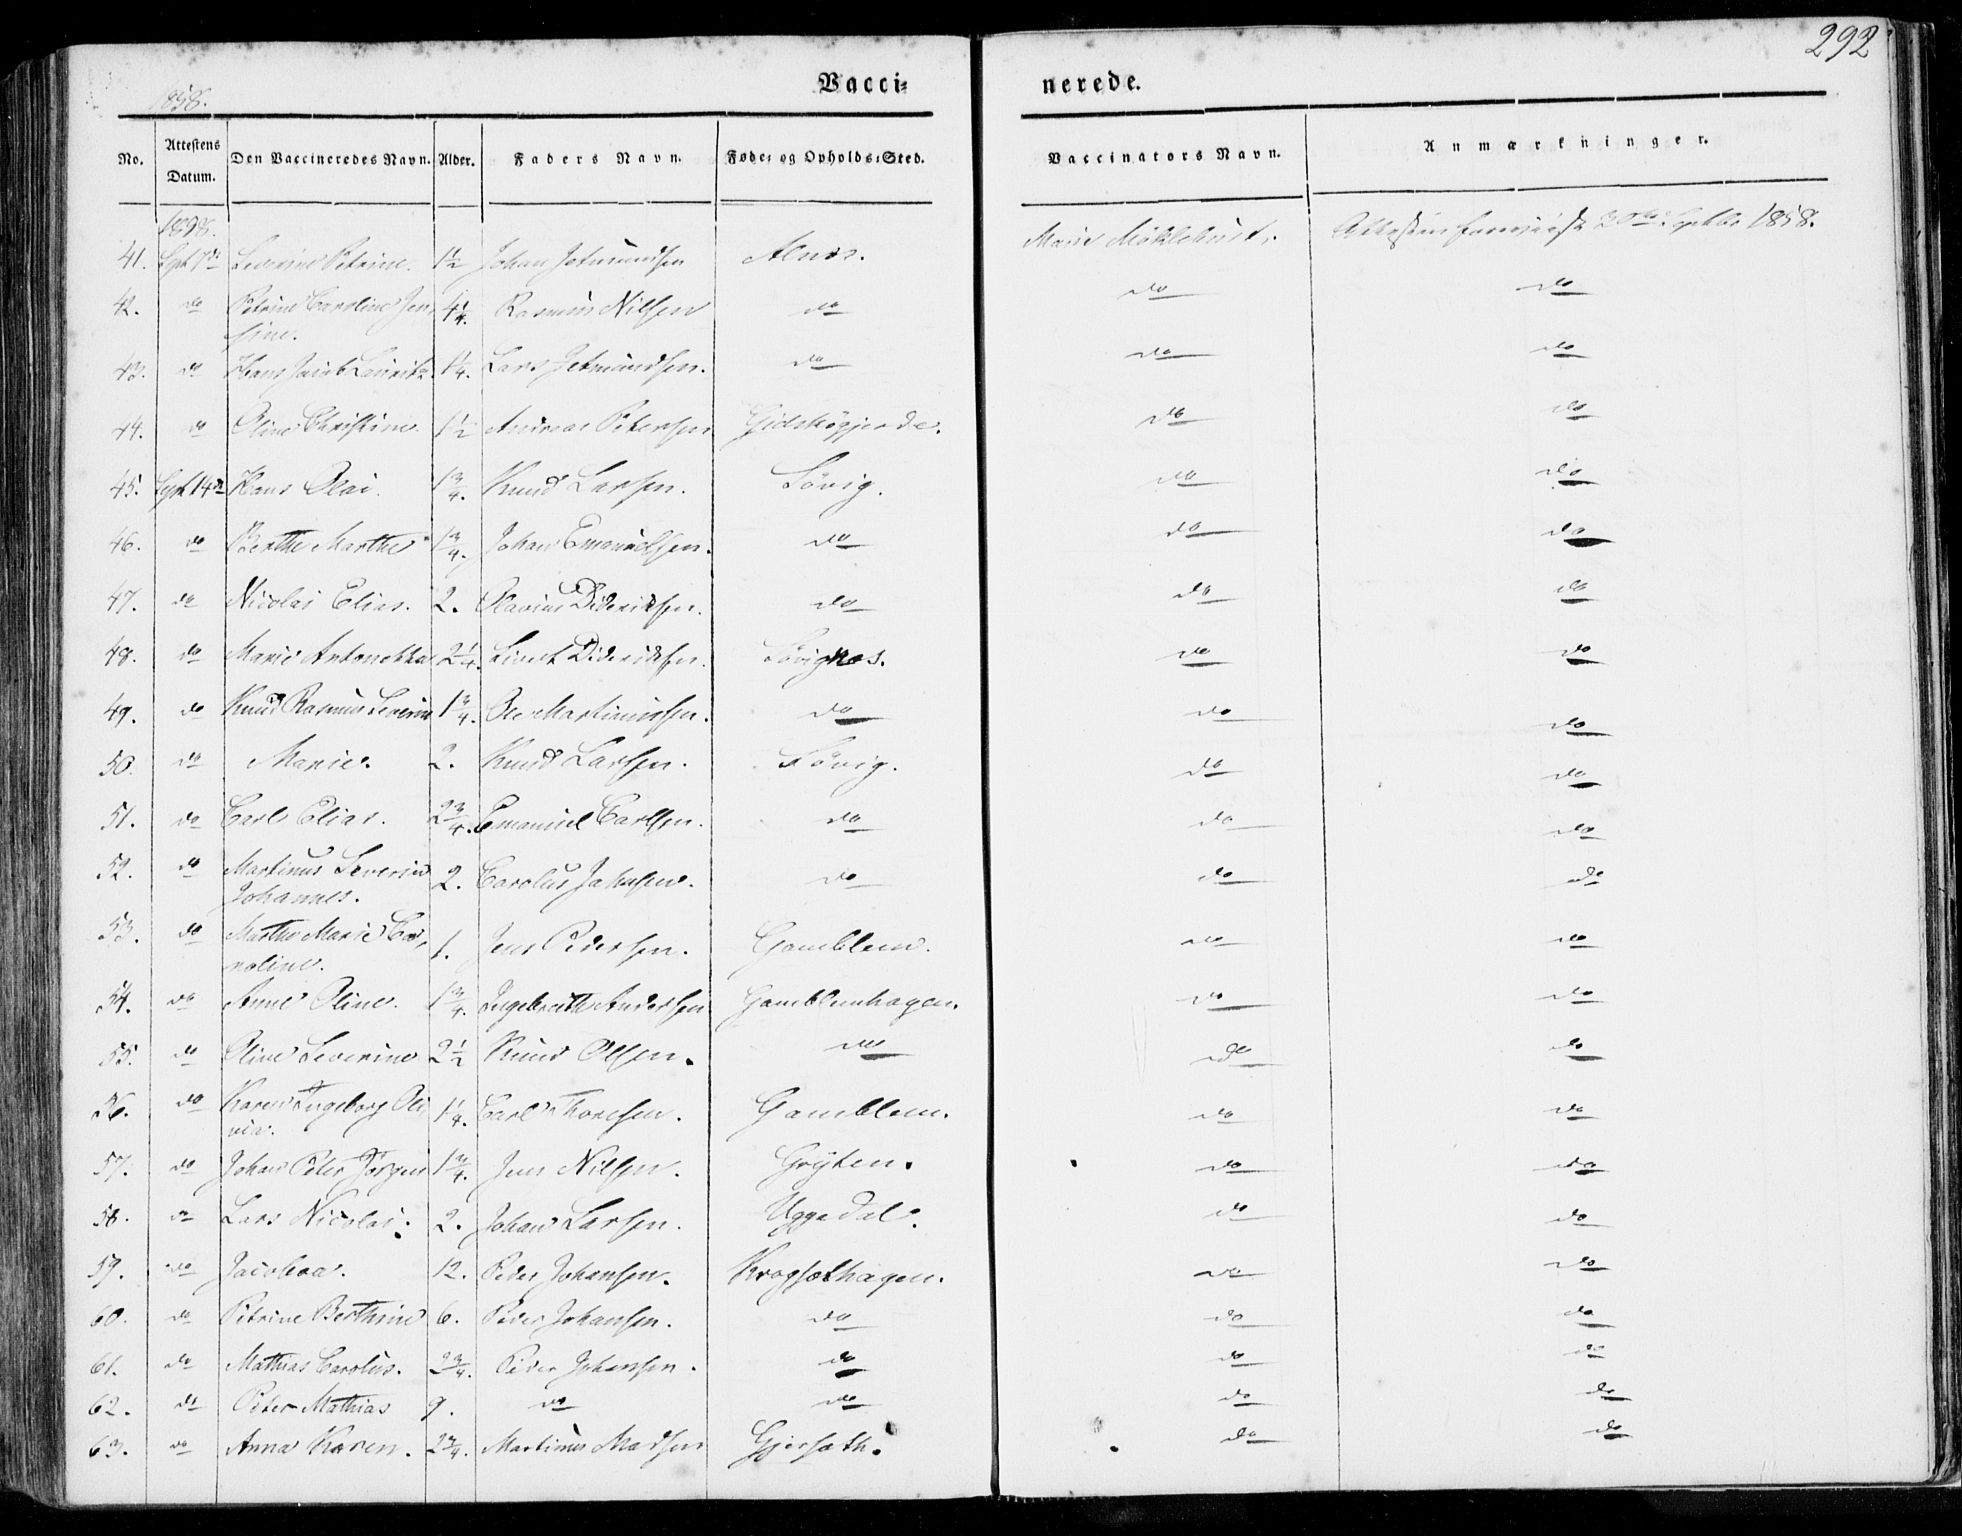 292
1858.
Vacci= nerede.
No. Attestens Datum. Den Vaccineredes Navn. Alder. Faders Navn. Føde= og Opholds=Sted. Vaccinators Navn. Anmærkninger.
1858.
41. Sept 7de Severine Petrine. 1½ Johan Jetmundsen Alnæs. Marie Möklebust. 30te Septbr 1858.
42. do Petrine Caroline Jen= 4¼. Rasmus Nilsen do do do
sine.
43. do Hans Jacob Lauritz 1¼. Lars Jetmundsen. do do do
44. do Oline Christine. 1½ Andreas Petersen Gidskögjerde. do do
45. Sept 14de Hans Olai. 1¾. Knud Larsen. Lövig. do do
46. do Berthe Marthe 1¾. Johan Emanuelsen. do do do
47. do Nicolai Elias. 2. Olavius Dideriksen. do do do
48. do Marie Antonette 2¼. Sivert Dideriksen. Lövignæs. do do
49. do Knud Rasmus Severin 1¾. Ole Martinussen. do do do
50. do Marie. 2. Knud Larsen. Lövig. do do
51. do Carl Elias. 2¾. Emanuel Carlsen. do do do
52. do Martinus Severin 2. Carolus Johnsen. do do do
Johannes.
53. do Marthe Marie Ca= 1. Jens Pedersen. Gamblem. do do
roline.
54. do Anne Oline. 1¾. Ingebricth Andersen Gamblemhagen. do do
55. do Oline Severine 2½ Knud Olsen. do do do
56. do Karen Ingeborg Oli 1¼. Carl Thoresen. Gamblem. do do
via.
57. do Johan Peter Jörgen 1¾. Jens Nilsen. Grÿten. do do
58. do Lars Nicolai. 2. Johan Larsen. Uggedal. do do
59. do Jacobea. 12. Peder Johansen. Krogsæthagen. do do
60. do Petrine Berthine 6. Peder Johansen. do do do
61. do Mathias Carolus. 2¾. Peder Johansen. do do do
62. do Peter Mathias 9. do do do do
63. do Anna Karen. 2¾. Martinus Madsen Gjersæth. do do